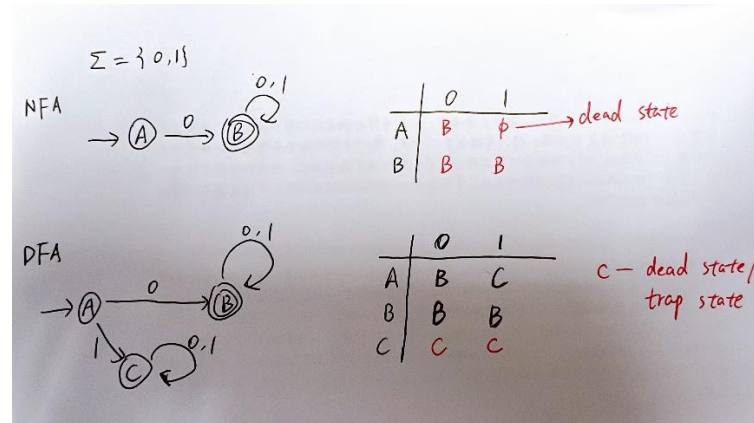 Σ = {0,1}
NFA
→ A 0 → B 0,1
0 1
A B ϕ → dead state
B B B
DFA
→ A 0 → B 0,1
1 C 0,1
0 1
A B C
B B B
C C C
C — dead state/
trap state